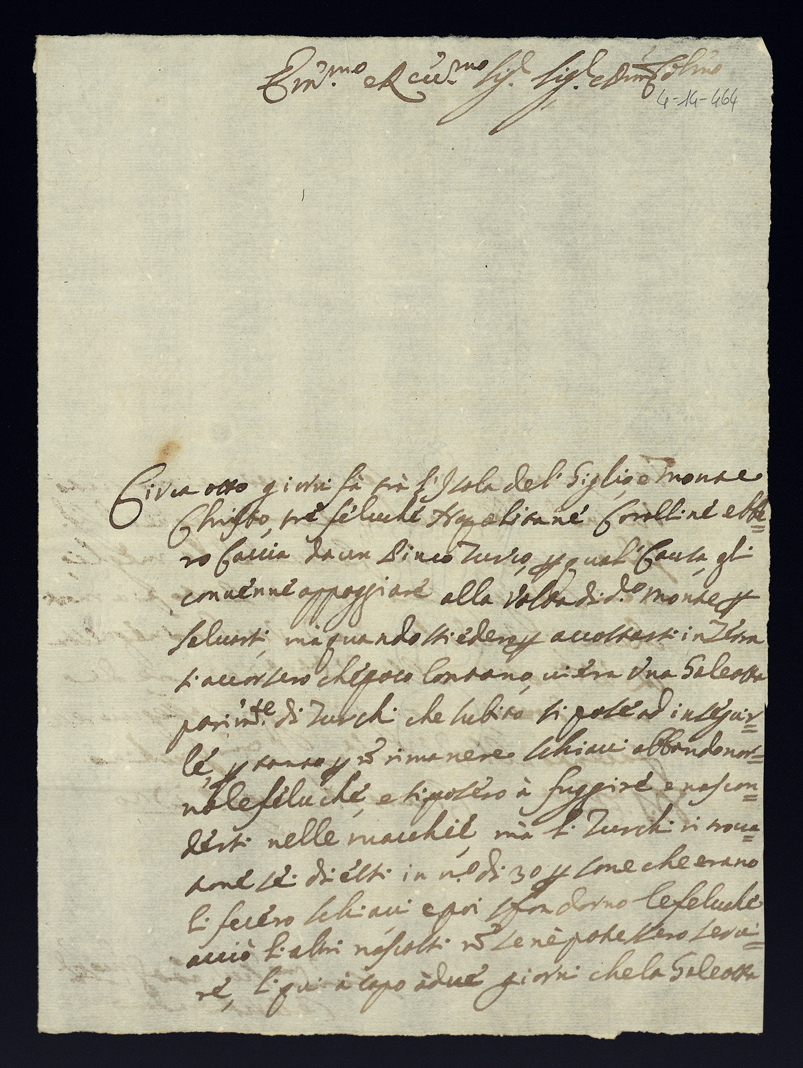 Em.mo e Rev.mo Sig.r Sig.r e Pron Col.mo
4-14-464
Circa otto giorni fà trà l'Isola del Giglio e Monte
Christo, trè feluche Napolitane Coralline ebbe=
ro Caccia da un Pinco Turco, p qual Causa, gli
convenne appoggiare alla volta di d.o Monte p
salvarsi, mà quando stiedero p accostarsi in Terra
si accorsero che poco lontano, vi era una Galeotta
parim.te di Turchi che subito si pose ad inseguir=
le, p tanto p nõ rimanere schiavi abbandonor=
no le feluche, e si posero à fuggire e nascon=
dersi nelle macchie, mà li Turchi ritrova=
tone sei di essi in n.o di 30 p sone che erano
li fecero schiavi e poi sfondorno le feluche
acciò li altri nascosti nõ se ne potessero servi=
re, li quì à capo à due giorni che la Galeotta